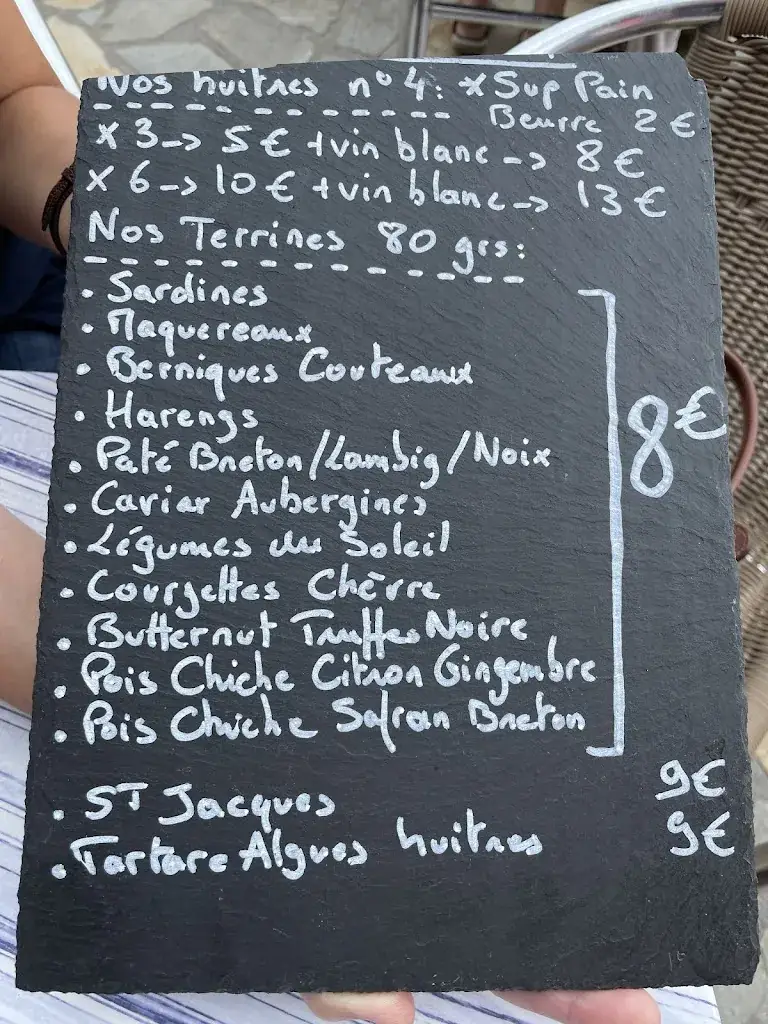 Nos huitres n°4: x Sup Pain
Beurre 2€
x 3 -> 5€ +vin blanc -> 8€
x 6 -> 10€ +vin blanc -> 13€
Nos Terrines 80 grs:
. Sardines
. Maquereaux
. Berniques Couteaux
. Harengs
. Paté Breton/Lambig/Noix
. Caviar Aubergines
. Légumes du Soleil
. Courgettes Chèvre
. Butternut Truffes Noire
. Pois Chiche Citron Gingembre
. Pois Chiche Safran Breton
8€
. ST Jacques 9€
. Tartare Algues huitres 9€